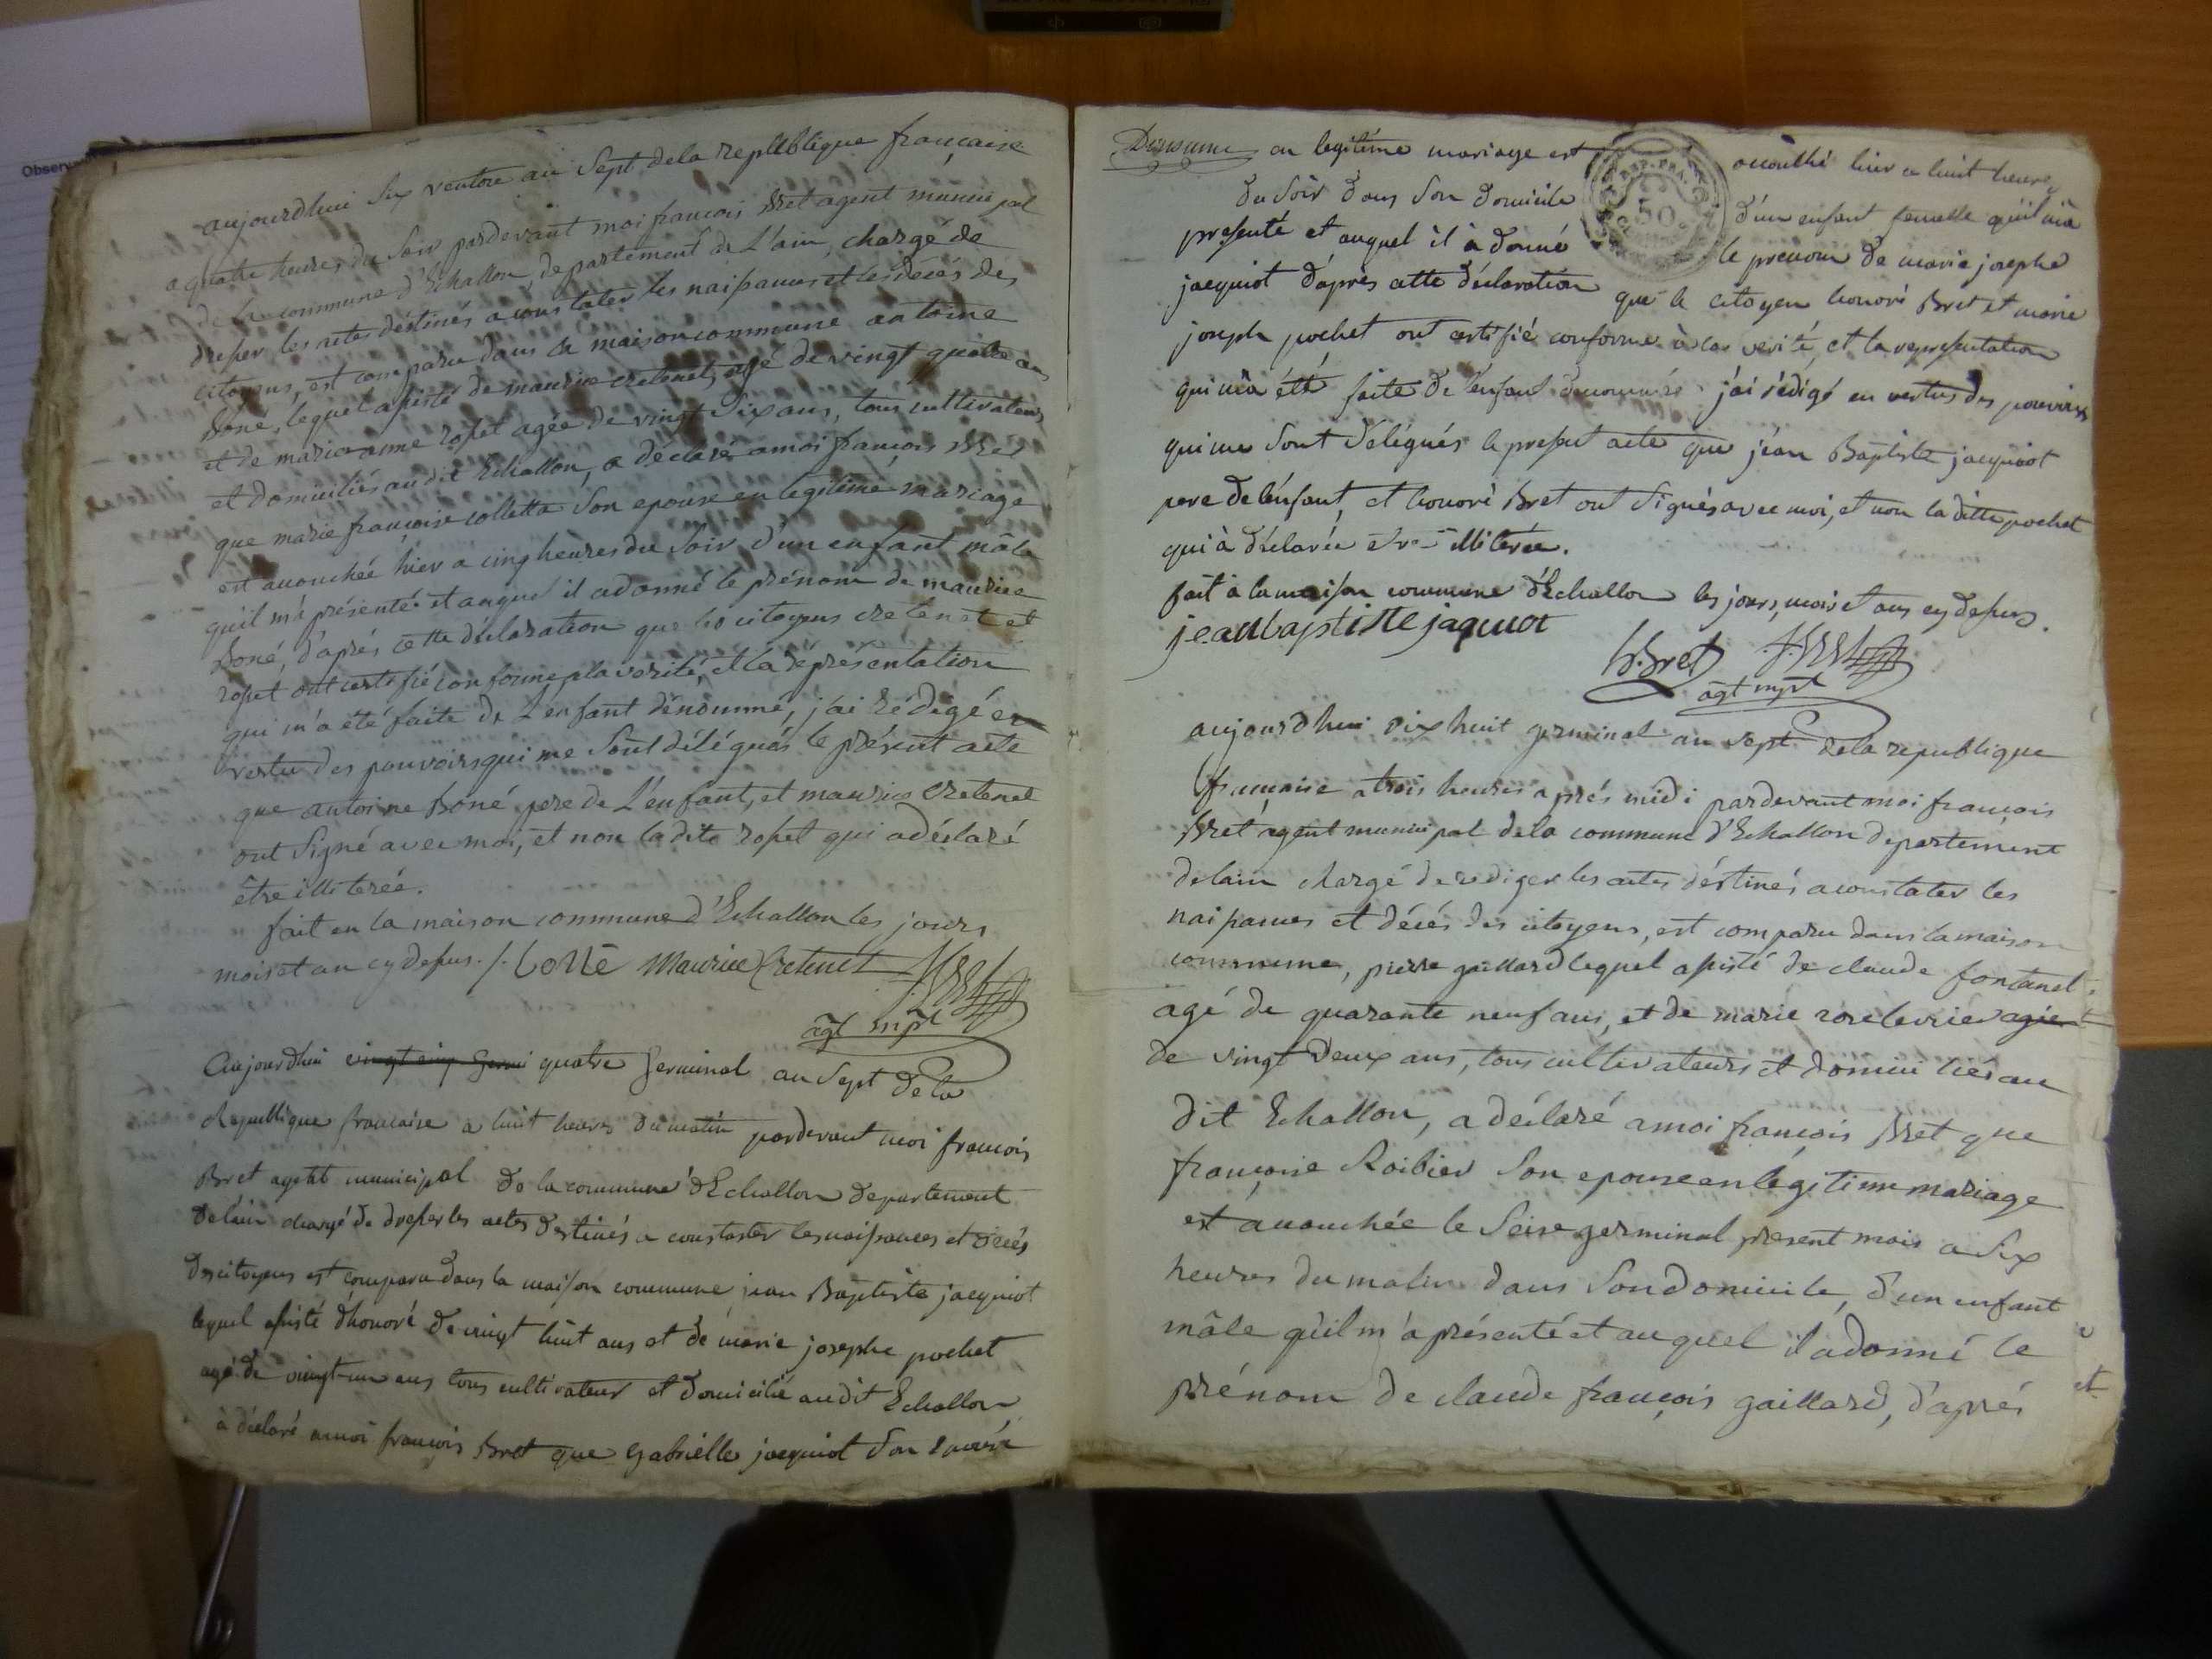 Observ
aujourdhui six ventose an sept dela republique française
a quatre heures du soir pardevant moi francois Bret agent municipal
de la commune d'Echallon, departement de L'ain, chargé de
dresser les actes déstinés a constater les naissances et les décés des
citoyens, est comparu dans la maison commune antoine
Boné, lequel assisté de maurice cretenet, agé de vingt quatre ans
et de marie anne rosset agée de vingt six ans, tous cultivateurs
et domiciliés audit Echallon, a déclaré a moi françois Bret
que marie françoise colletta son epouse en legitime mariage
est accouchée hier a cinq heures du soir d'un enfant mâle
qu'il m'a présenté et auquel il a donné le prénom de maurice
Boné, d'aprés cette déclaration que les citoyens cretenet et
rosset ont certifié conforme a la vérité, et la réprésentation
qui m'a été faite de L'enfant dénommé, j'ai rédigé en
vertu des pouvoirs qui me sont délégués le présent acte
que antoine Boné pere de L'enfant, et maurice cretenet
ont signé avec moi, et non ladite rosset qui a déclaré
être illiterée.
fait en la maison commune d'Echallon les jours
mois et an cy dessus. /. Maurice Cretenet
agt mpl
Aujourdhui vingt cinq germi quatre Germinal an sept de la
Republique francaise a huit heures du matin pardevant moi francois
Bret agent municipal de la commune d'Echallon departement
de lain chargé de dresser les actes destinés a constater les naissances et décés
des citoyens est comparu dans la maison commune jean Baptiste jacquiot
lequel assisté d'honoré de vingt huit ans et de marie josephe pochet
agé de vingt un ans tous cultivateur et domicilié audit Echallon
à déclaré a moi françois Bret que Gabrielle jacquiot son
en legitime mariage est accouché hier a huit heures
REP. FRA.
50
du soir dans son domicile d'un enfant femelle qu'il m'à
presenté et auquel il à donné le prenom de marie josephe
jacquiot d'après cette déclaration que le citoyen honoré Bret et marie
joseph pochet ont certifié conforme à la verité, et la representation
qui m'a été faite de l'enfant denommée j'ai rédigé en vertus des pouvoirs
qui me sont délégués le present acte que jean Baptiste jacquiot
pere de l'enfant, et honoré Bret ont signés avec moi, et non la ditte pochet
qui à déclarée être illiterée.
fait à la maison commune d'Echallon les jours, mois et ans cy dessus.
jeanbaptiste jaquiot
h. Bret
agt mpl
aujourdhui dix huit germinal an sept dela republique
francaise a trois heures aprés midi pardevant moi françois
Bret agent municipal dela commune d'Echallon departement
delain chargé de rediger les actes déstinés a constater les
naissances et décés des citoyens, est comparu dans la maison
commune, pierre gaillard lequel assisté de claude fontanel
agé de quarante neuf ans, et de marie rose levrier agée
de vingt deux ans, tous cultivateurs et domiciliés au
dit Echallon, a déclaré a moi françois Bret que
françoise Roibier son epouse en légitime mariage
est accouchée le seise germinal present mois a six
heures du matin dans son domicile, d'un enfant
mâle qu'il m'a présenté et auquel il a donné le
prénom de claude françois gaillard, d'aprés
et